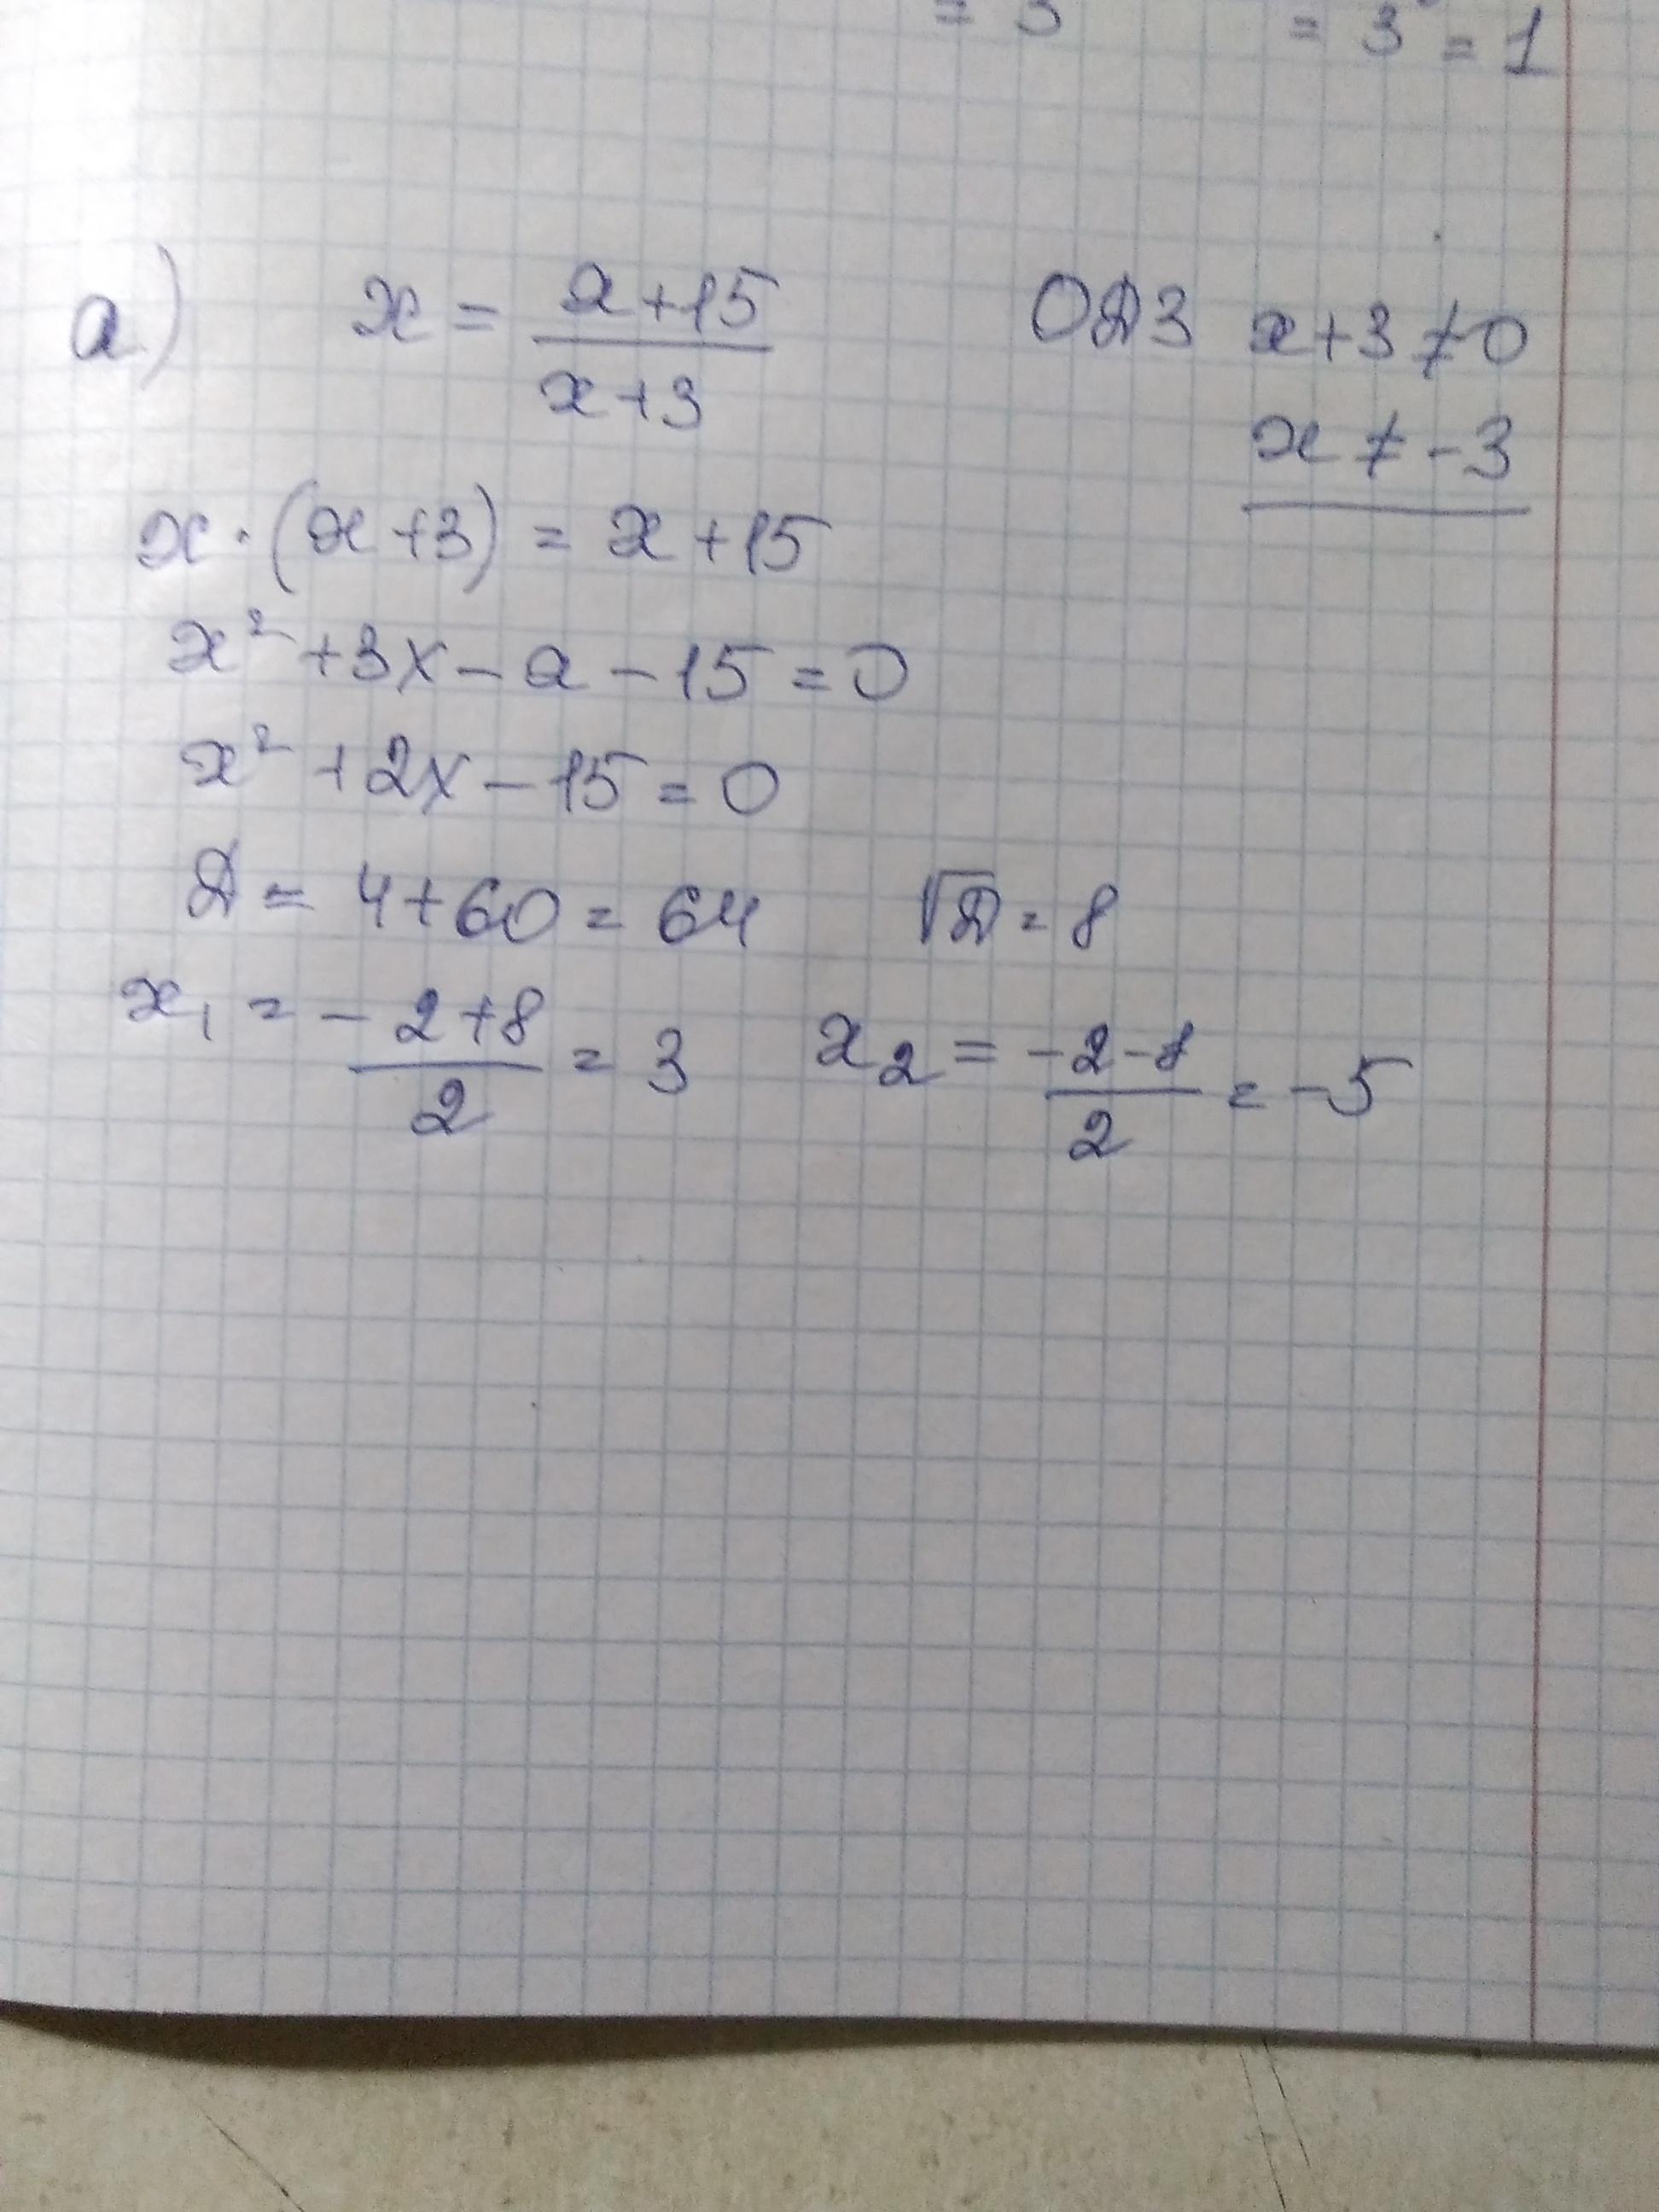 = 3⁰ = 1
а) x = (x+15)/(x+3) ОДЗ x+3 ≠ 0
x ≠ -3
x · (x+3) = x+15
x² + 3x - x - 15 = 0
x² + 2x - 15 = 0
Д = 4+60 = 64 √Д = 8
x₁ = (-2+8)/2 = 3 x₂ = (-2-8)/2 = -5